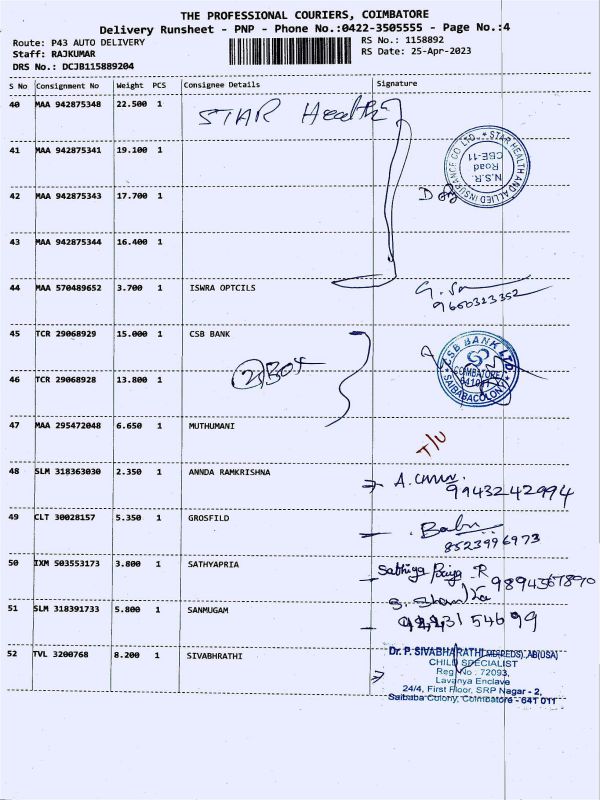 THE PROFESSIONAL COURIERS, COIMBATORE
Delivery Runsheet - PNP - Phone No.:0422-3505555 - Page No.:4
Route: P43 AUTO DELIVERY
RS No.: 1158892
Staff: RAJKUMAR
RS Date: 25-Apr-2023
DRS No.: DCJB115889204
S No Consignment No Weight PCS Consignee Details Signature
40 MAA 942875348 22.500 1 STAR Health
41 MAA 942875341 19.100 1
STAR HEALTH AND ALLIED INSURANCE CO LTD.
N.S.R. Road
CBE-11
42 MAA 942875343 17.700 1
43 MAA 942875344 16.400 1
44 MAA 570489652 3.700 1 ISWRA OPTCILS
9600323352
45 TCR 29068929 15.000 1 CSB BANK
CSB BANK LTD.
COIMBATORE
SAIBABACOLONY
2 BOX
46 TCR 29068928 13.800 1
47 MAA 295472048 6.650 1 MUTHUMANI
48 SLM 318363030 2.350 1 ANNDA RAMKRISHNA
9943242994
49 CLT 30028157 5.350 1 GROSFILD Babu
8523996973
50 IXM 503553173 3.800 1 SATHYAPRIA Sathiya Priya .R
9894567890
51 SLM 318391733 5.800 1 SANMUGAM
52 TVL 3200768 8.200 1 SIVABHRATHI
Dr. P. SIVABHARATHI
CHILD SPECIALIST
Reg No. 72093,
Lavanya Enclave
24/4, First Floor, SRP Nagar - 2,
Saibaba Colony, Coimbatore - 641 011